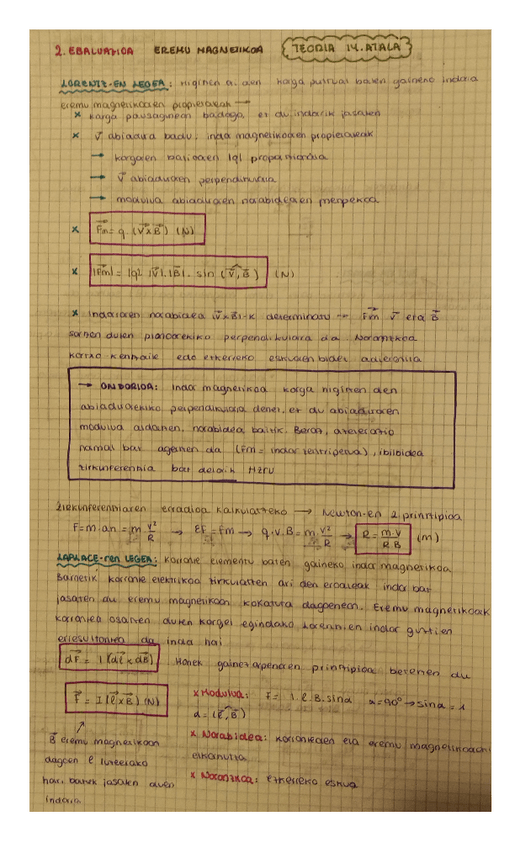 2. EBALUAZIOA EREMU MAGNETIKOA TEORIA 14. ATALA
LORENTZ-EN LEGEA: higitzen ari den karga puntual baten gaineko indarra
eremu magnetikoaren propietateak →
× karga pausagunean badago, ez du indarrik jasaten
× V⃗ abiadura badu: indar magnetikoaren propietateak
→ kargaren balioaren |q| proportzionala
→ V⃗ abiaduraren perpendikularra
→ modulua abiaduraren norabidearen menpekoa
× F⃗m = q · (V⃗xB⃗) (N)
× |F⃗m| = |q| · |V⃗| · |B⃗| · sin (V⃗, B⃗) (N)
× Indarraren norabidea |V⃗xB⃗|-k determinatu → F⃗m V⃗ eta B⃗
sortzen duten planoarekiko perpendikularra da. Norantzkoa
kortxo kentzaile edo ezkerreko eskuaren bidez
→ ONDORIOA: Indar magnetikoa karga higitzen den
abiadurarekiko perpendikularra denez, ez du abiaduraren
modulua aldatzen, norabidea baizik. Beraz, azelerazio
normal bat agertzen da (Fm = indar zentripetua), ibilbidea
zirkunferentzia bat delarik HZKU
Zirkunferentziaren erradioa kalkulatzeko → Newton-en 2. printzipioa
F = m · an = m · V²/R → ΣF = Fm → q · V · B = m · V²/R → R = m · V / R · B (m)
LAPLACE-ren LEGEA: korronte elementu baten gaineko indar magnetikoa
Barnetik korronte elektrikoa zirkulatzen ari den eroaleak indar bat
jasaten du eremu magnetikoan kokatuta dagoenean. Eremu magnetikoak
korrontea osatzen duten kargei egindako Lorentzen indar guztien
erresultantea da indar hau
dF⃗ = I (dl⃗ x dB⃗) Honek gainezarpenaren printzipioa betetzen du
F⃗ = I (l⃗ x B⃗) (N) × Modulua: F = I · l · B · sinα α = 90° → sinα = 1
α = (l⃗, B⃗)
B⃗ eremu magnetikoan × Norabidea: korrontearen eta eremu magnetikoarekiko
dagoen l luzerako elkarzuta
hari batek jasaten duen × Norantzkoa: ezkerreko eskua
indarra